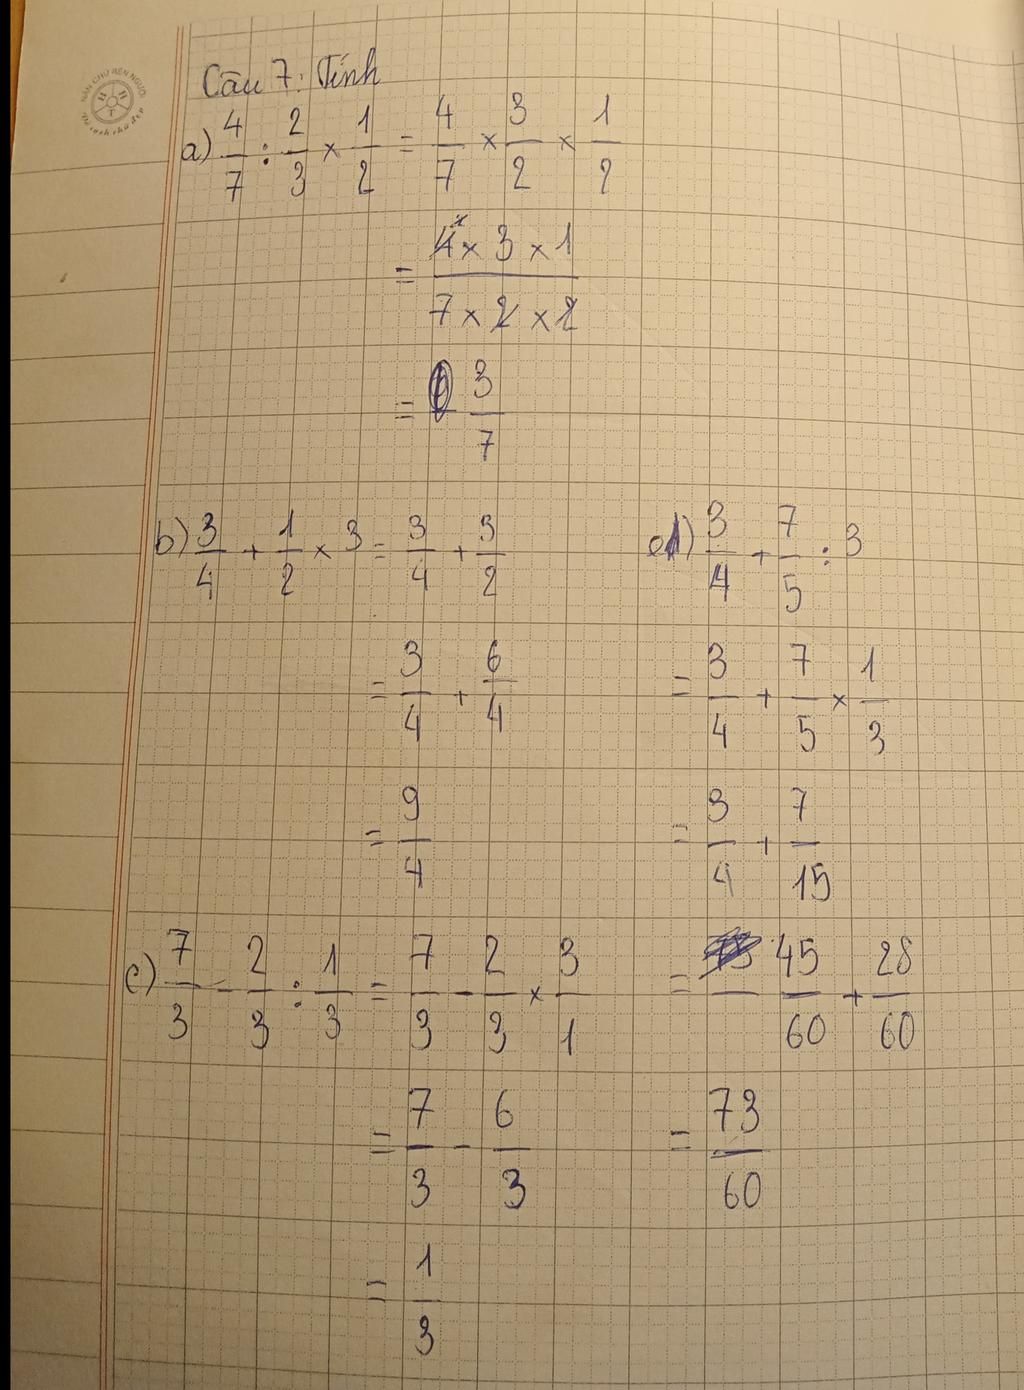 NẮN CHỮ RÈN NGƯỜI
Câu 7: Tính
a) 4/7 : 2/3 × 1/2 = 4/7 × 3/2 × 1/2
= 4 × 3 × 1 / 7 × 2 × 2
= 3/7
b) 3/4 + 1/2 × 3 = 3/4 + 3/2
= 3/4 + 6/4
= 9/4
c) 7/3 - 2/3 : 1/3 = 7/3 - 2/3 × 3/1
= 7/3 - 6/3
= 1/3
d) 3/4 + 7/5 : 3
= 3/4 + 7/5 × 1/3
= 3/4 + 7/15
= 45/60 + 28/60
= 73/60